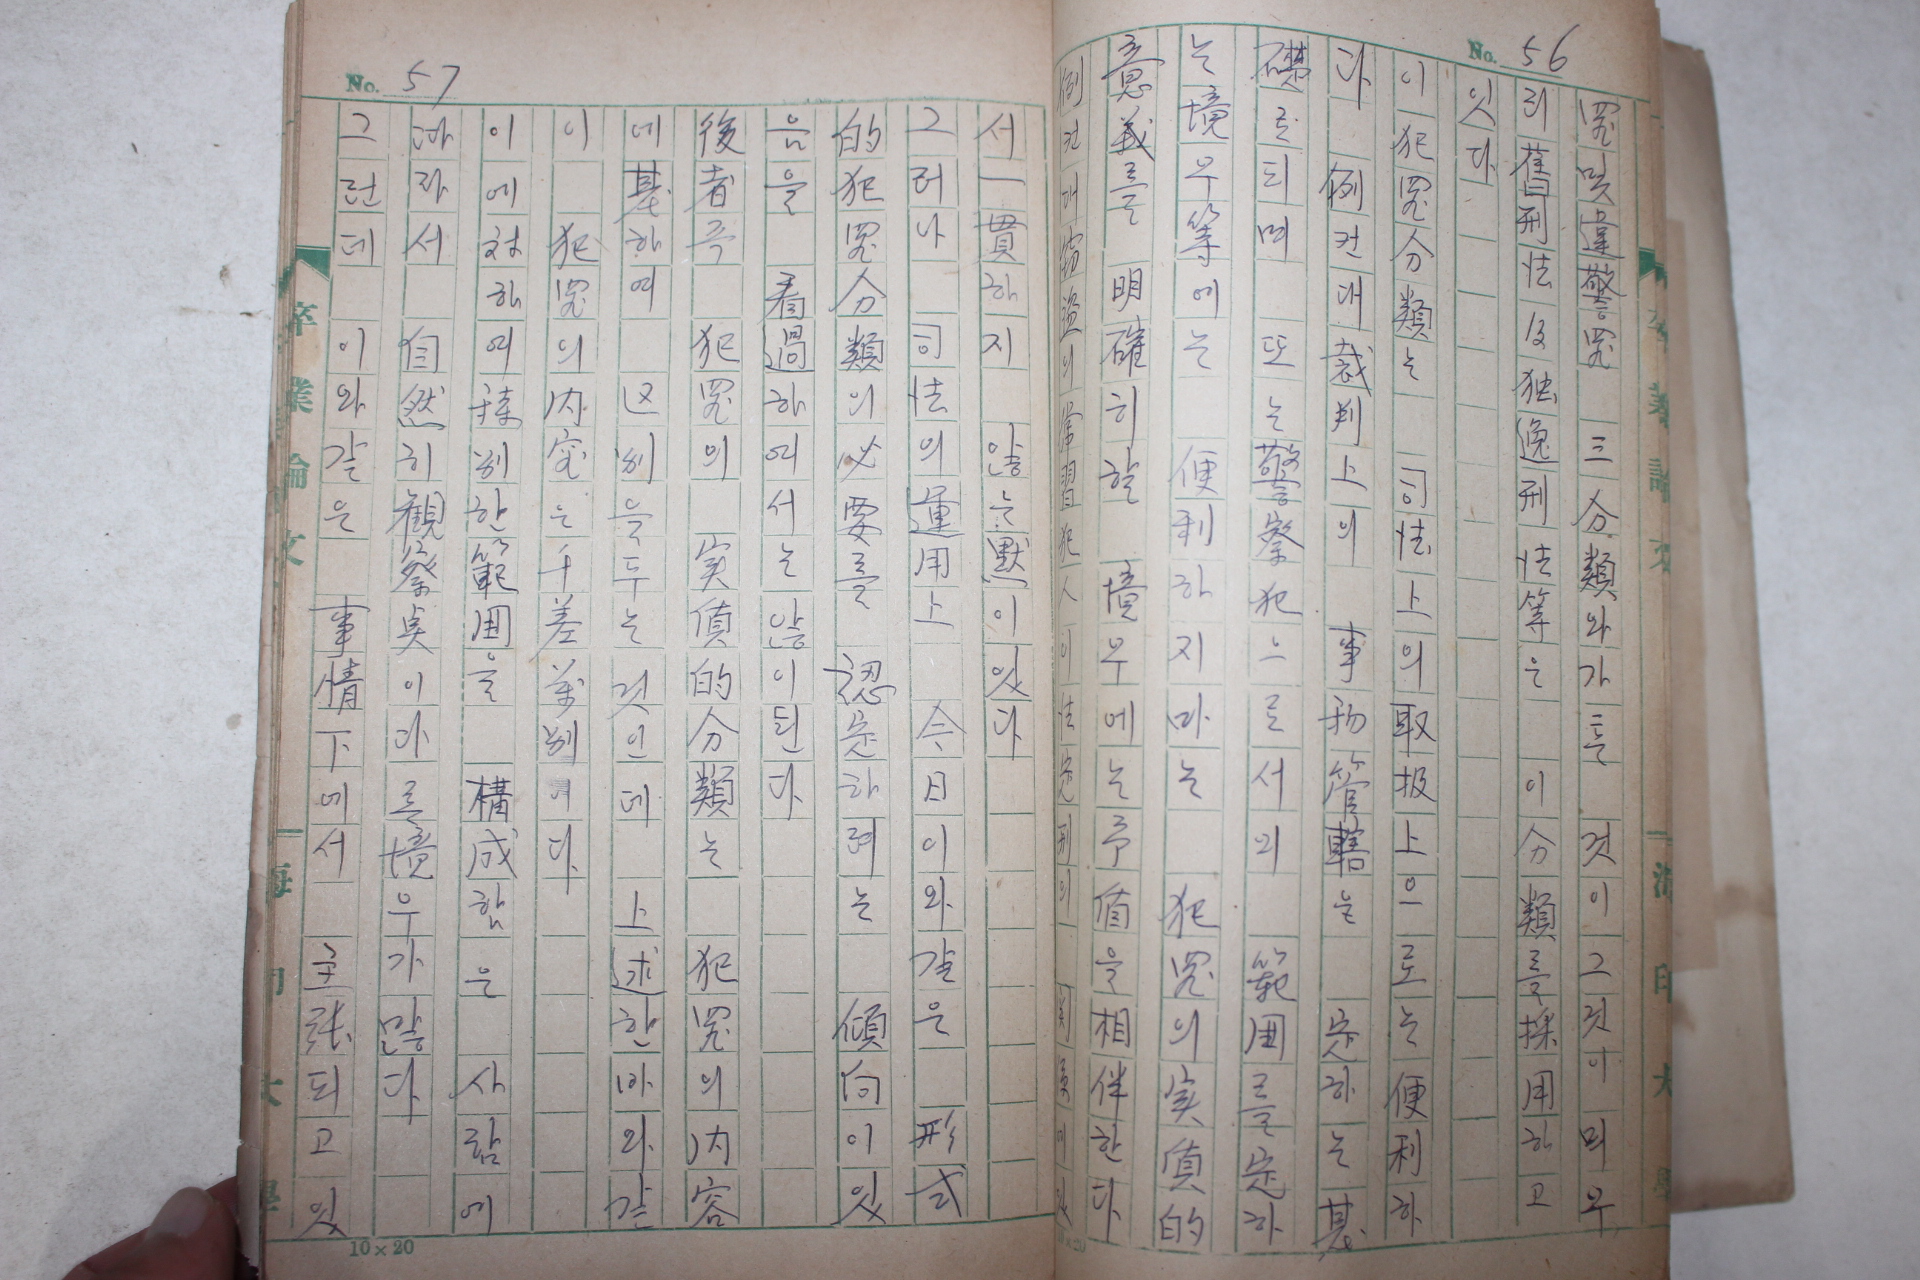 No. 56
罪및違警罪 三分類와가튼 것이그것이며우
리舊刑法及独逸刑法等은 이分類를採用하고
잇다
이犯罪分類는 司法上의取扱上으로는便利하
다 例컨대裁判上의 事務管轄을 定하는基
礎로되며 또는警察犯으로서의 範囲를定하
는境우等에는 便利하지마는 犯罪의実質的
意義를 明確히할 境우에는予値을相伴한다
例컨대窃盜의常習犯人이法定刑의
No. 57
서一貫하지 안는點이있다
그러나 司法의運用上 今日이와같은 形式
的犯罪分類의必要를 認定하려는 傾向이있
음을 看過하여서는않이된다
後者즉 犯罪의 実質的分類는 犯罪의内容
에基하여 区別을두는것인데 上述한바와같
이 犯罪의内容은千差萬別이다
이에対하여特別한範囲을 構成함은 사람에
따라서 自然히觀察点이다를境우가많다
그런데 이와같은 事情下에서 主張되고있
10×20
卒業論文
海印大學